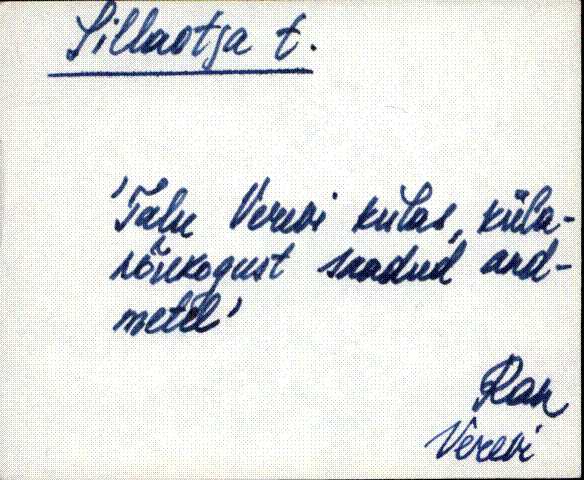 Sillaotsa t.
'Talu Verevi külas, küla-
nõukogust saadud and-
metel'
Ran
Verevi